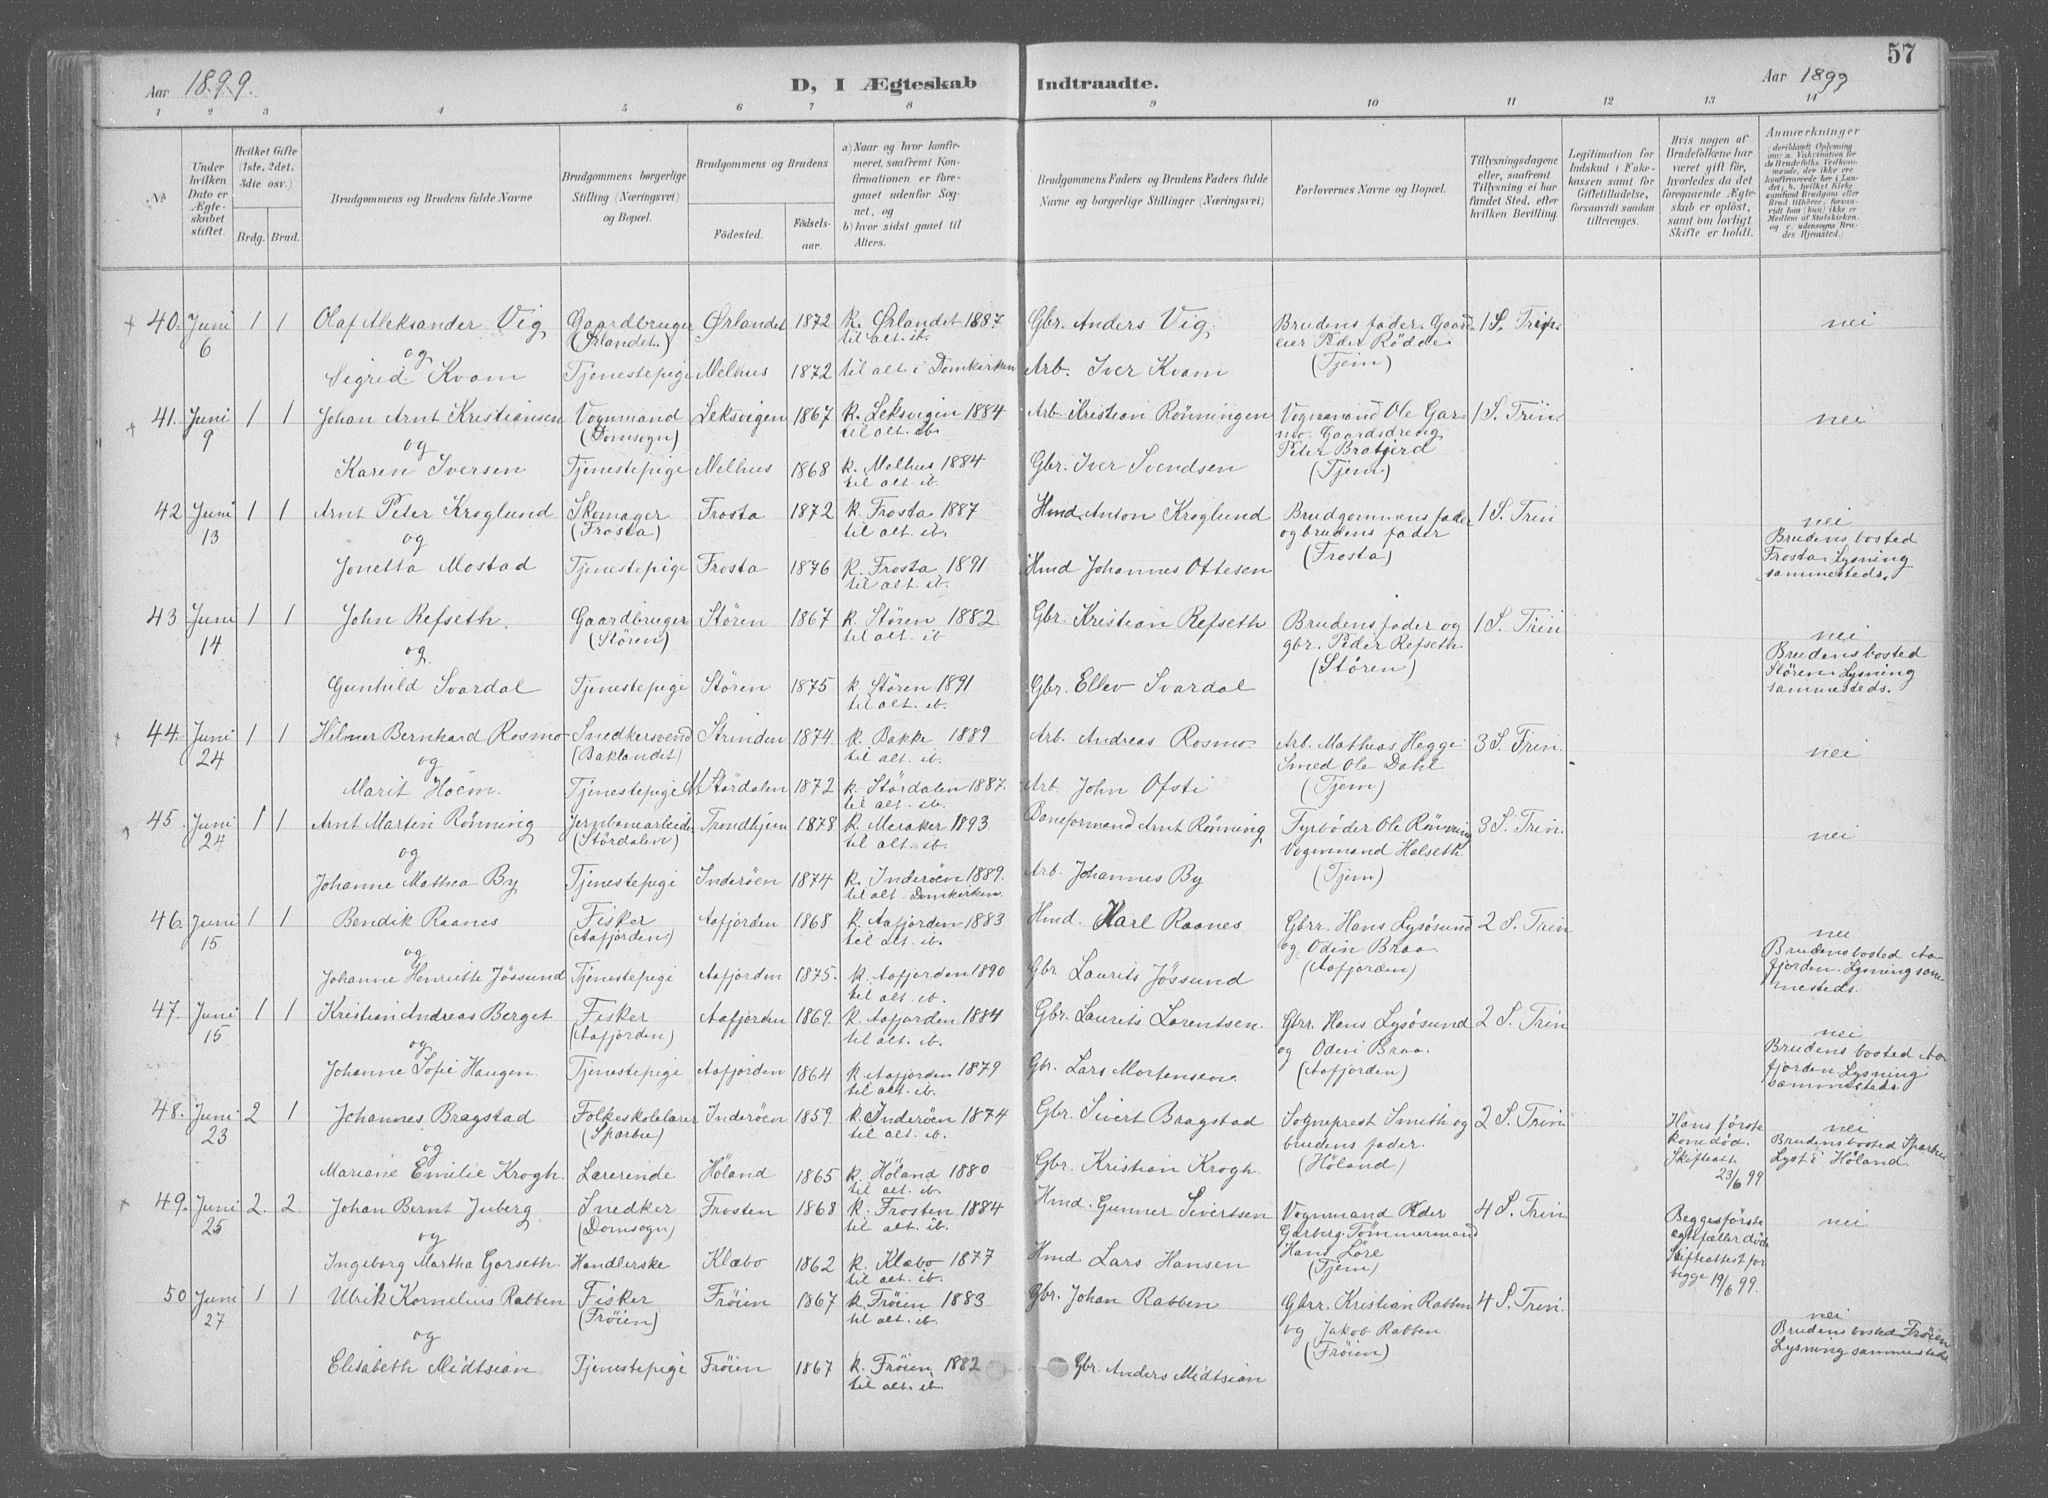 57
Aar 1899.
D, I Ægteskab Indtraadte.
Aar 1899
1 2 3 4 5 6 7 8 9 10 11 12 13 14
No
Under hvilken Dato er Ægteskabet stiftet.
Hvilket Gifte (1ste, 2det, 3die osv.)
Brdg. Brud.
Brudgommens og Brudens fulde Navne
Brudgommens borgerlige Stilling (Næringsvei) og Bopæl.
Brudgommens og Brudens
Fødested. Fødselsaar.
a) Naar og hvor konfirmeret, saafremt Konfirmationen er foregaaet udenfor Sognet, og
b) hvor sidst gaaet til Alters.
Brudgommens Faders og Brudens Faders fulde Navne og borgerlige Stillinger (Næringsvei)
Forlovernes Navne og Bopæl.
Tillysningsdagene eller, saafremt Tillysning ei har fundet Sted, efter hvilken Bevilling.
Legitimation for Indskud i Enkekassen samt for Giftetilladelse, forsaavidt saadan tiltrænges.
Hvis nogen af Brudefolkene har været gift før, hvorledes da det foregaaende Ægteskab er opløst, samt om lovligt Skifte er holdt.
Anmærkninger
40. Juni 6 1 1 Olaf Aleksander Vig Gaardbruger (Ørlandet.) Ørlandet 1872 k. Ørlandet 1887 til alt. ib. Gbr. Anders Vig. Brudens fader. Gaardeier Peder Rödde (Tjem) 1 S. Trin. nei
og
Sigrid Kvam Tjenestepige Melhus 1872 til alt i Domkirken Arb. Iver Kvam
41. Juni 9 1 1 Johan Arnt Kristiansen Vognmand (Domsogn) Leksvigen 1867 k. Leksvigen 1884 til alt. ib. Arb. Kristian Rönningen Vognmand Ole Garmo. Gaardsdreng Peter Bratjerd (Tjem) 1 S. Trin. nei
og
Karen Iversen Tjenestepige Melhus 1868 k. Melhus 1884 til alt. ib. Gbr. Iver Svendsen
42 Juni 13 1 1 Arnt Peter Kroglund Skomager (Frosta) Frosta 1872 k. Frosta 1887 til alt. ib. Hmd. Anton Kroglund Brudgommens fader og brudens fader (Frosta) 1 S. Trin nei Brudens bosted Frosta. Lysning sammesteds.
og
Jonetta Mostad Tjenestepige Frosta 1876 k. Frosta 1891 til alt. ib. Hmd Johannes Ottesen
43 Juni 14 1 1 John Refseth. Gaardbruger (Stören) Stören 1867 k. Stören 1882 til alt. ib Gbr. Kristian Refseth Brudens fader og gbr. Peder Refseth. (Stören) 1 S. Trin nei Brudens bosted Stören. Lysning sammesteds.
og
Gunhild Svardal Tjenestepige Stören 1875 k. Stören 1891 til alt. ib. Gbr. Ellev Svardal
44. Juni 24 1 1 Hilmer Bernhard Rosmo Snedkersvend (Baklandet) Strinden 1874 k. Bakke 1889 til alt. ib. Arb. Andreas Rosmo Arb. Mathias Hegge Smed Ole Dahl (Tjem) 3 S. Trin. nei
og
Marit Hoem. Tjenestepige N. Stördalen 1872 k. Stördalen 1887. til alt. ib. Arb. John Ofsti
45. Juni 24 1 1 Arnt Martin Rönning Jernbanearbeider (Stördalen) Trondhjem 1878 k. Meraker 1893 til alt. ib. Baneformand Arnt Rönning Fyrböder Ole Rönning Vognmand Halseth. (Tjem) 3 S. Trin. nei
og
Johanne Mathea By Tjenestepige Inderöen 1874 k. Inderöen 1889. til alt Domkirken. Arb. Johannes By
46. Juni 15 1 1 Bendik Raanes Fisker (Aafjorden.) Aafjorden 1868 k. Aafjorden 1883 til alt. ib. Hmd. Karl Raanes Gbrr. Hans Lysösund og Odin Braa. (Aafjorden) 2 S. Trin nei Brudens bosted Aafjorden. Lysning sammesteds.
og
Johanne Henriette Jössund Tjenestepige Aafjorden 1875. k. Aafjorden 1890 til alt. ib. Gbr Laurits Jössund
47. Juni 15 1 1 Kristian Andreas Berget Fisker (Aafjorden) Aafjorden 1869. k. Aafjorden 1884 til alt. ib. Gbr. Laurits Lorentsen. Gbrr. Hans Lysösund og Odin Braa. (Aafjorden) 2 S. Trin nei Brudens bosted Aafjorden Lysning sammesteds.
og
Johanne Sofie Haugen. Tjenestepige Aafjorden 1864 k. Aafjorden 1879 til alt. ib. Gbr. Lars Mortensen.
48. Juni 23 2 1 Johannes Bragstad Folkeskolelærer (Sparbu) Inderöen 1859. k. Inderöen 1874 til alt. ib. Gbr. Sivert Bragstad Sogneprest Smith og brudens fader. (Höland) 2 S. Trin. Hans förste kone död. Skifteatt. 23/6 99 nei Brudens bosted Sparbu Lyst i Höland.
og
Mariane Emilie Krogh. Lærerinde Höland 1865 k. Höland 1880 til alt. ib. Gbr. Kristian Krogh.
49. Juni 25 2. 2. Johan Bernt Juberg Snedker (Domsogn) Frosten 1868 k. Frosten 1884 til alt. ib. Hmd. Gunner Sivertsen Vognmand Peder Garberg. Tömmermand Hans Löre (Tjem) 4 S. Trin Begges förste ægtefæller döde Skifteattest for begge 19/6 99. nei
og
Ingeborg Martha Gorseth. Handlerske Klæbo 1862 k. Klæbo 1877 til alt. ib. Hmd. Lars Hansen
50 Juni 27 1 1 Ulrik Kornelius Rabben Fisker (Fröien) Fröien 1867 k. Fröien 1883 til alt. ib. Gbr. Johan Rabben Gbrr. Kristian Rabben og Jakob Rabben (Fröien) 4 S. Trin. nei Brudens bosted Fröien Lysning sammesteds
og
Elisabeth Midtsian Tjenestepige Fröien 1867 k. Fröien 1882 til alt. ib. Gbr. Anders Midtsian